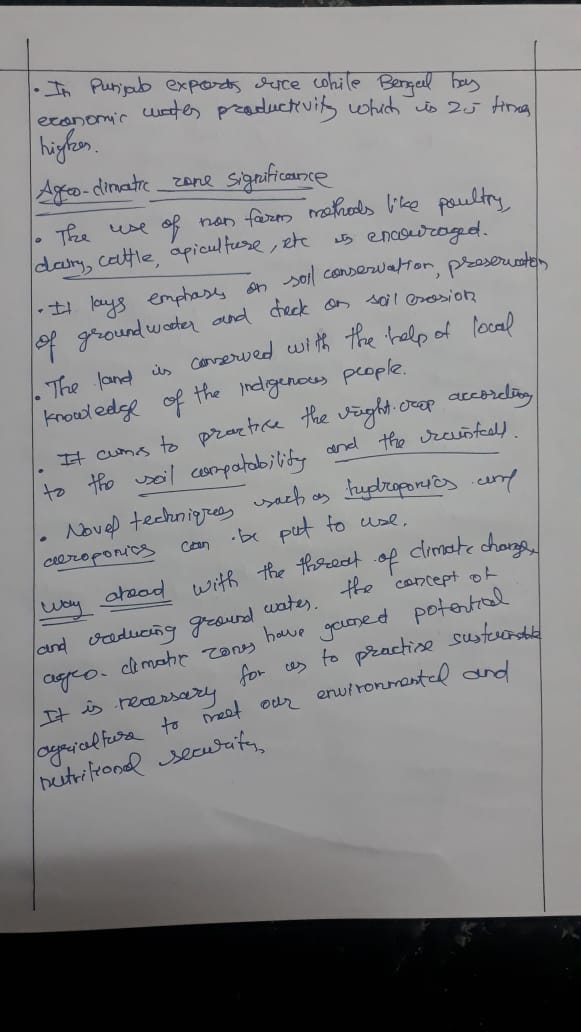 . In Punjab exports rice while Bengal has
economic water productivity which is 2.5 times
higher.
Agro-climatic zone significance
. The use of non farm methods like poultry,
dairy, cattle, apiculture, etc is encouraged.
. It lays emphasis on soil conservation, preservation
of groundwater and check on soil erosion
. The land is conserved with the help of local
knowledge of the indigenous people.
. It aims to practice the right crop according
to the soil compatability and the rainfall.
. Novel techniques such as hydroponics and
aeroponics can be put to use.
Way ahead With the threat of climate change,
and reducing ground water. The concept of
agro-climatic zones have gained potential
It is necessary for us to practise sustainable
agriculture to meet our environmental and
nutritional security,